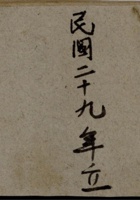 民國二十九年立